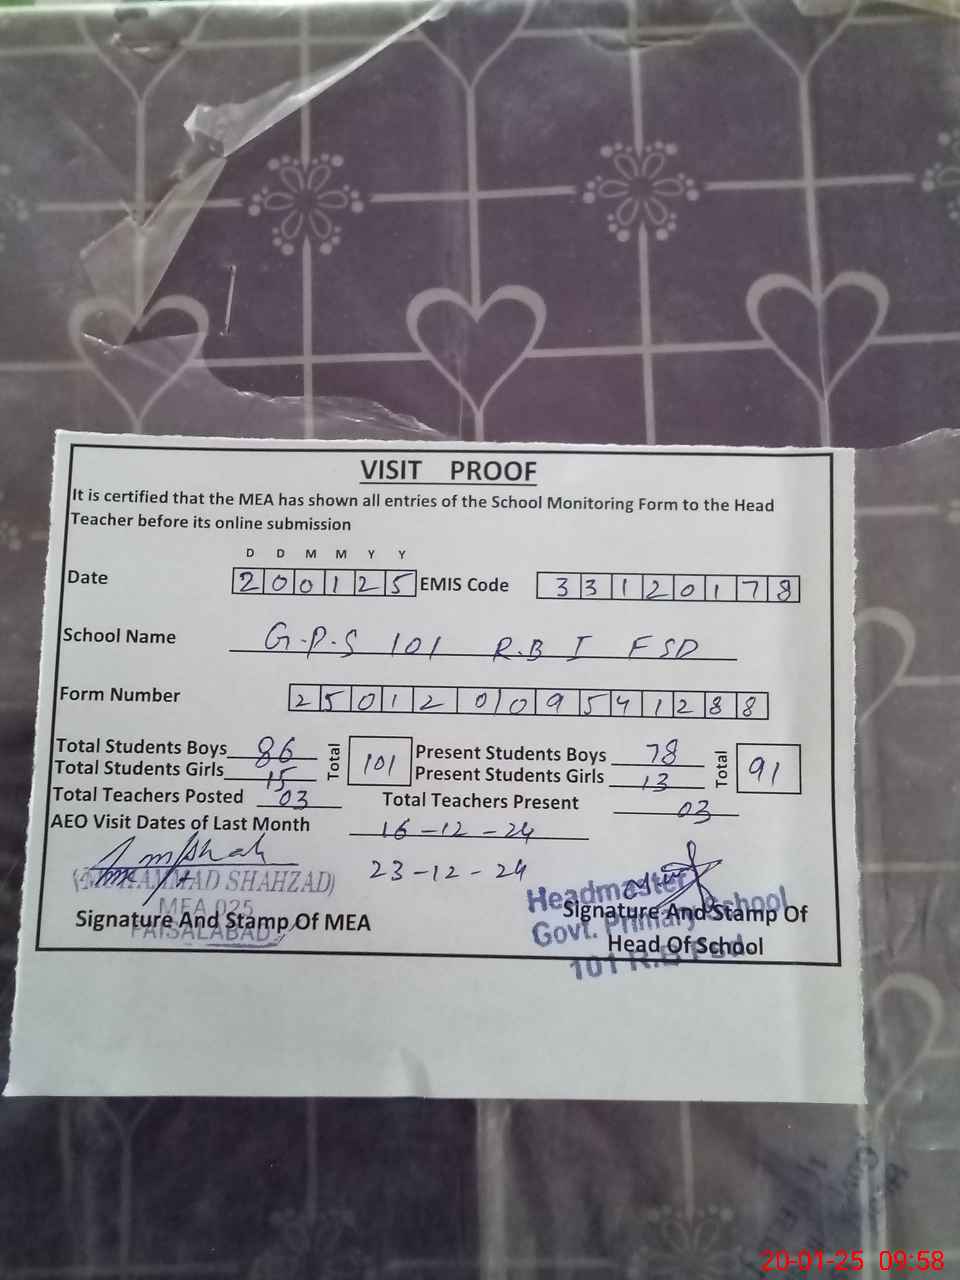 VISIT PROOF
It is certified that the MEA has shown all entries of the School Monitoring Form to the Head
Teacher before its online submission
D D M M Y Y
Date 200125 EMIS Code 33120178
School Name G.P.S 101 R.B I FSD
Form Number 25012009541288
Total Students Boys 86 Total 101 Present Students Boys 78 Total 91
Total Students Girls 15 Present Students Girls 13
Total Teachers Posted 03 Total Teachers Present 03
AEO Visit Dates of Last Month 16-12-24
23-12-24
(MUHAMMAD SHAHZAD)
MEA 025
FAISALABAD
Signature And Stamp Of MEA
Headmaster
Govt. Primary School
101 R.B Fsd
Signature And Stamp Of
Head Of School
20-01-25 09:58